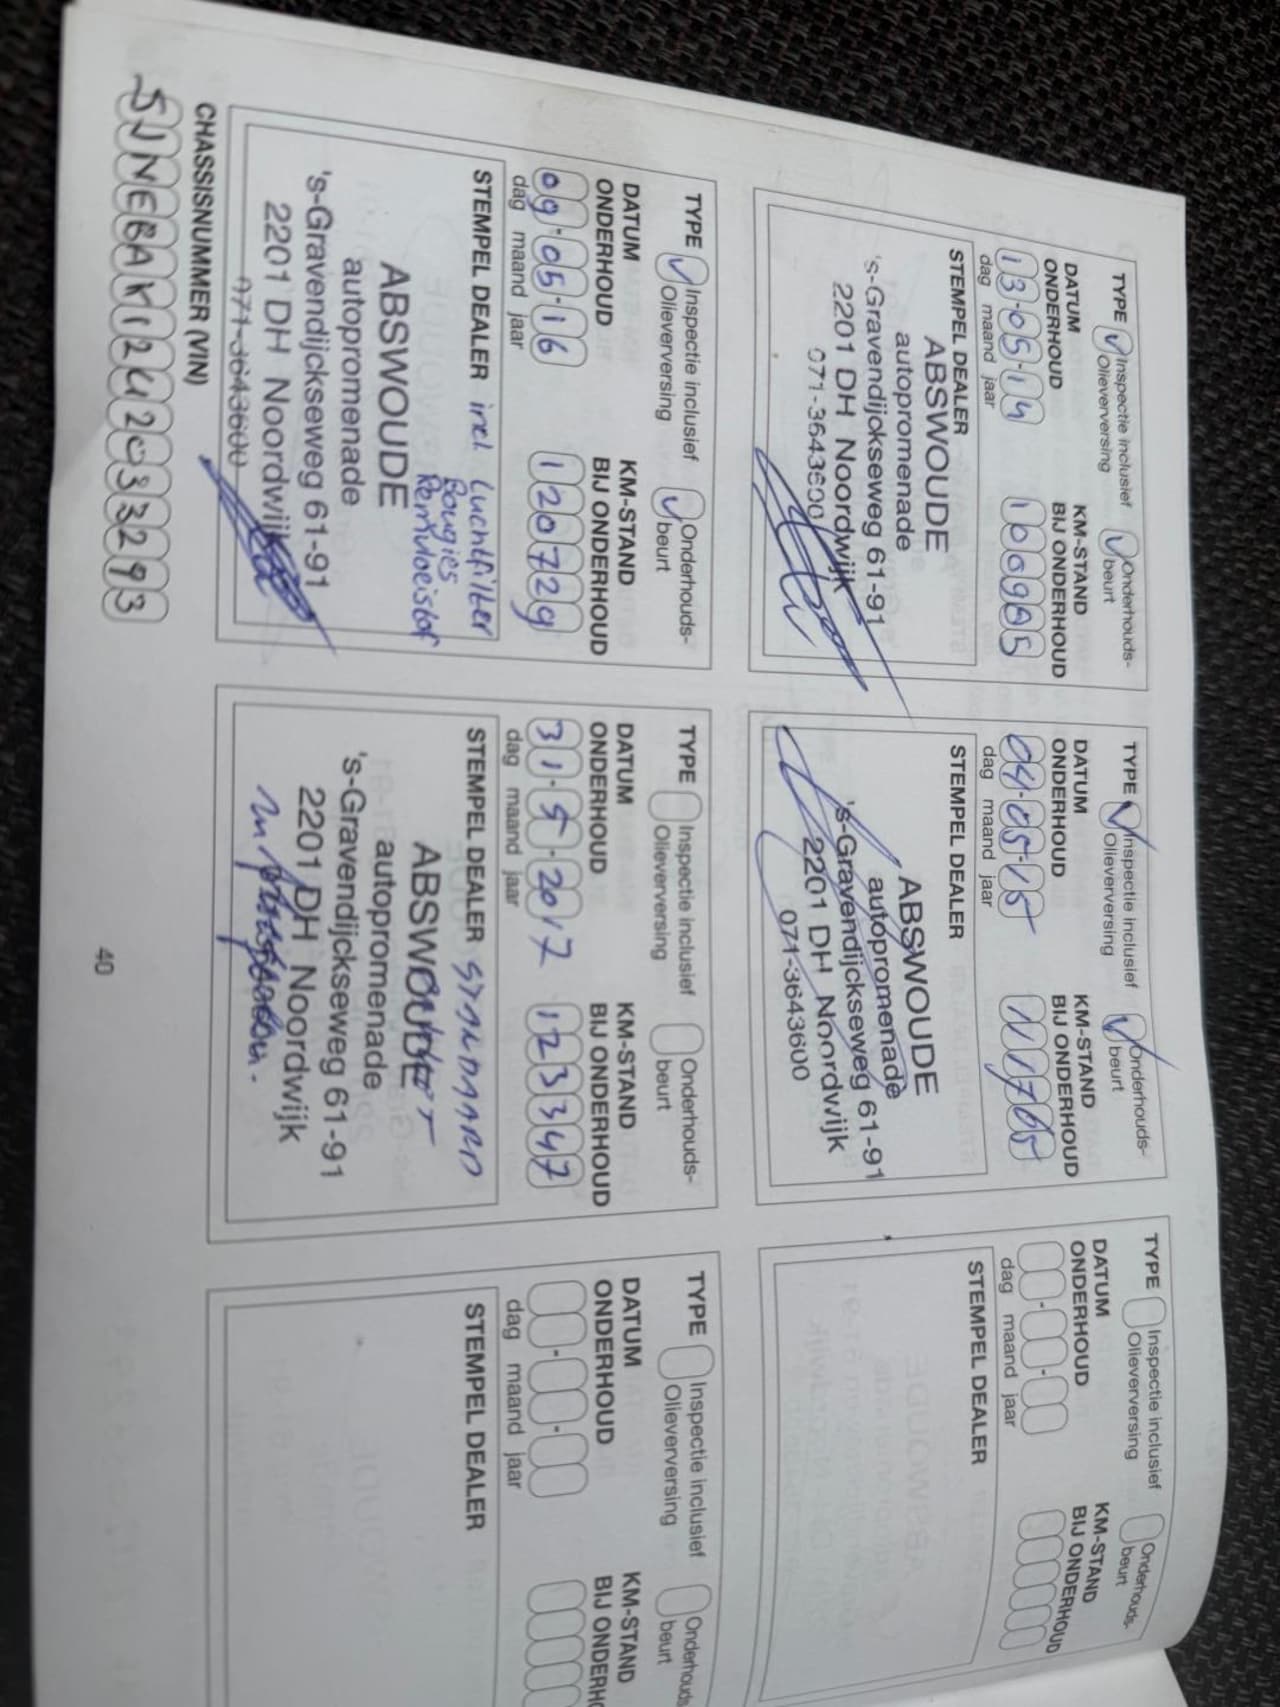 TYPE Inspectie inclusief Olieverversing Onderhouds-beurt
DATUM ONDERHOUD
KM-STAND BIJ ONDERHOUD
13-05-14
dag maand jaar
STEMPEL DEALER
ABSWOUDE
autopromenade
's-Gravendijckseweg 61-91
2201 DH Noordwijk
071-3643600
TYPE Inspectie inclusief Olieverversing Onderhouds-beurt
DATUM ONDERHOUD
KM-STAND BIJ ONDERHOUD
04-05-15 111765
dag maand jaar
STEMPEL DEALER
ABSWOUDE
autopromenade
's-Gravendijckseweg 61-91
2201 DH Noordwijk
071-3643600
TYPE Inspectie inclusief Olieverversing Onderhouds-beurt
DATUM ONDERHOUD
KM-STAND BIJ ONDERHOUD
dag maand jaar
STEMPEL DEALER
TYPE Inspectie inclusief Olieverversing Onderhouds-beurt
DATUM ONDERHOUD
KM-STAND BIJ ONDERHOUD
09-05-16 120729
dag maand jaar
STEMPEL DEALER incl Luchtfilter
Bougies
Remvloeistof
ABSWOUDE
autopromenade
's-Gravendijckseweg 61-91
2201 DH Noordwijk
071-3643600
TYPE Inspectie inclusief Olieverversing Onderhouds-beurt
DATUM ONDERHOUD
KM-STAND BIJ ONDERHOUD
31-5-2017 123347
dag maand jaar
STEMPEL DEALER STANDAARD
ABSWOUDE
autopromenade
's-Gravendijckseweg 61-91
2201 DH Noordwijk
TYPE Inspectie inclusief Olieverversing Onderhouds-beurt
DATUM ONDERHOUD
KM-STAND BIJ ONDERHO
dag maand jaar
STEMPEL DEALER
CHASSISNUMMER (VIN)
40